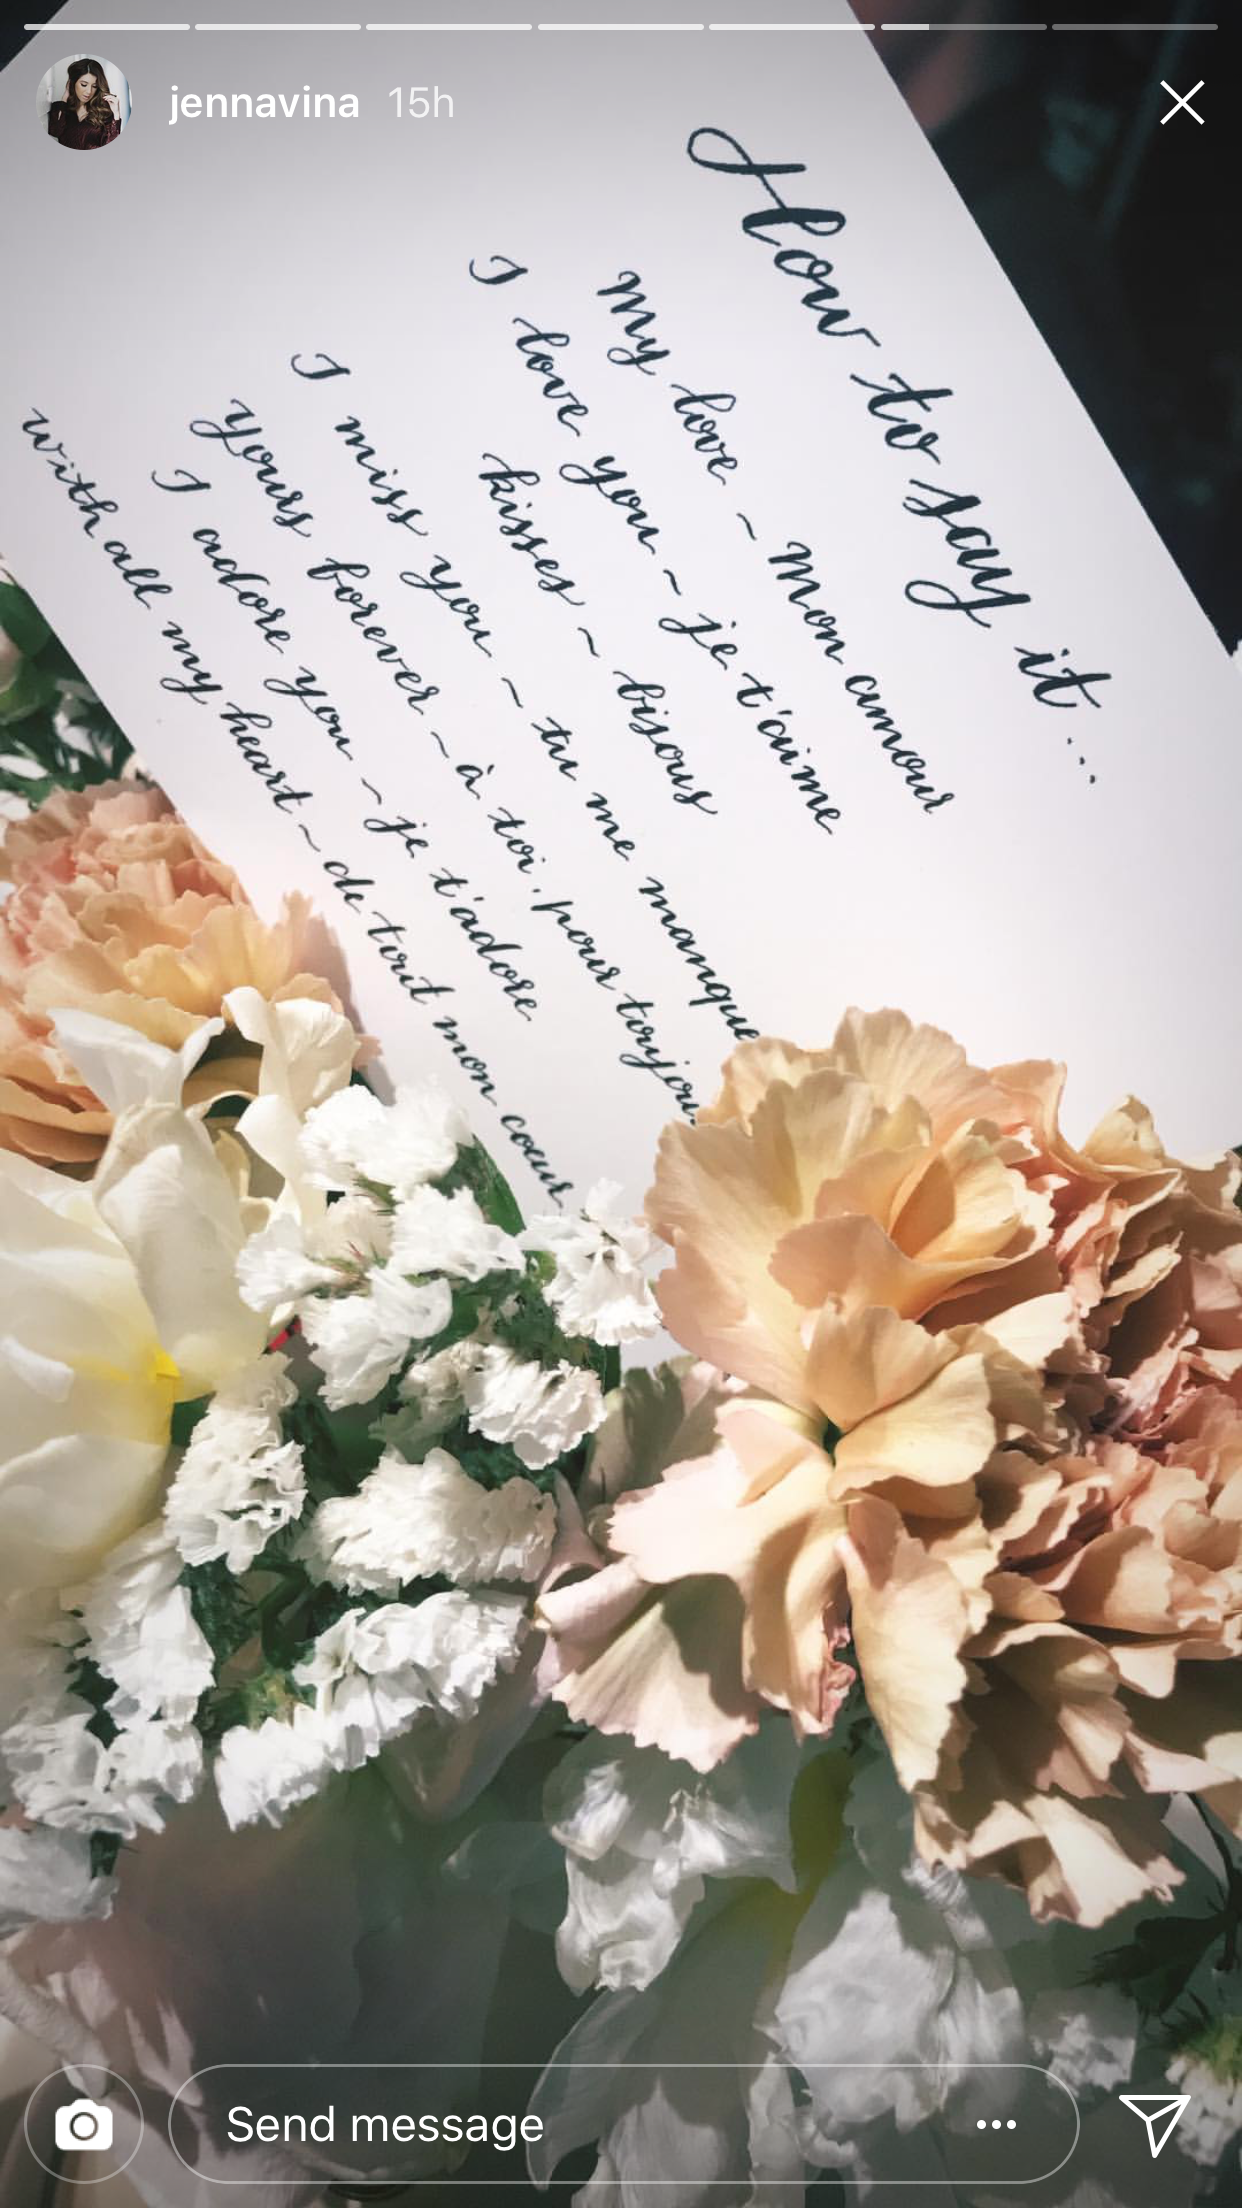 jennavina 15h
How to say it...
My love ~ Mon amour
I love you ~ je t'aime
kisses ~ bisous
I miss you ~ tu me manque
yours forever ~ à toi, pour toujou
I adore you ~ je t'adore
with all my heart ~ de tout mon coeur
Send message